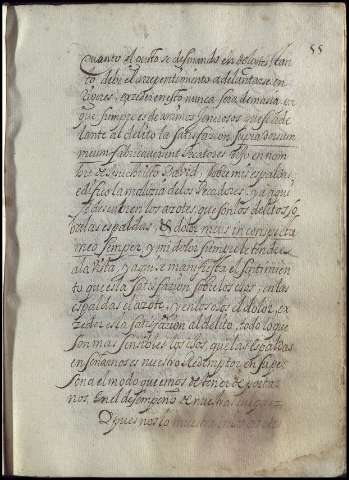 55
Quanto el gusto se desmando en deleites tan
to debe el arrepentimiento adelantarse en
Rigores, exceder en esto nunca sera demasia, por
que siempre es de animos generosos que sea de
lante al delito la satisfazion supra dorsum
meum fabricaverunt Pecatores, dijo en nom
bre de Xpto David, sobre mis espaldas
edifico la malizia de los Pecadores, y aqui
se descubren los azotes, que son los delitos so
bre las espaldas, & dolor meus in conspectu
meo semper, y mi dolor siempre le tendre
a la vista, y aqui se manifiesta el sentimien
to que es la satisfazion sobre los ojos, en las
espaldas el azote, y en los ojos el dolor, ex
zeder es la satisfazion al delito, todo lo que
son mas sensibles los ojos, que las espaldas
enseñarnos es nuestro Redemptor en su per
sona el modo que emos de tener de portar
nos, En el desempeño de nuestra
Pues nos lo muestra